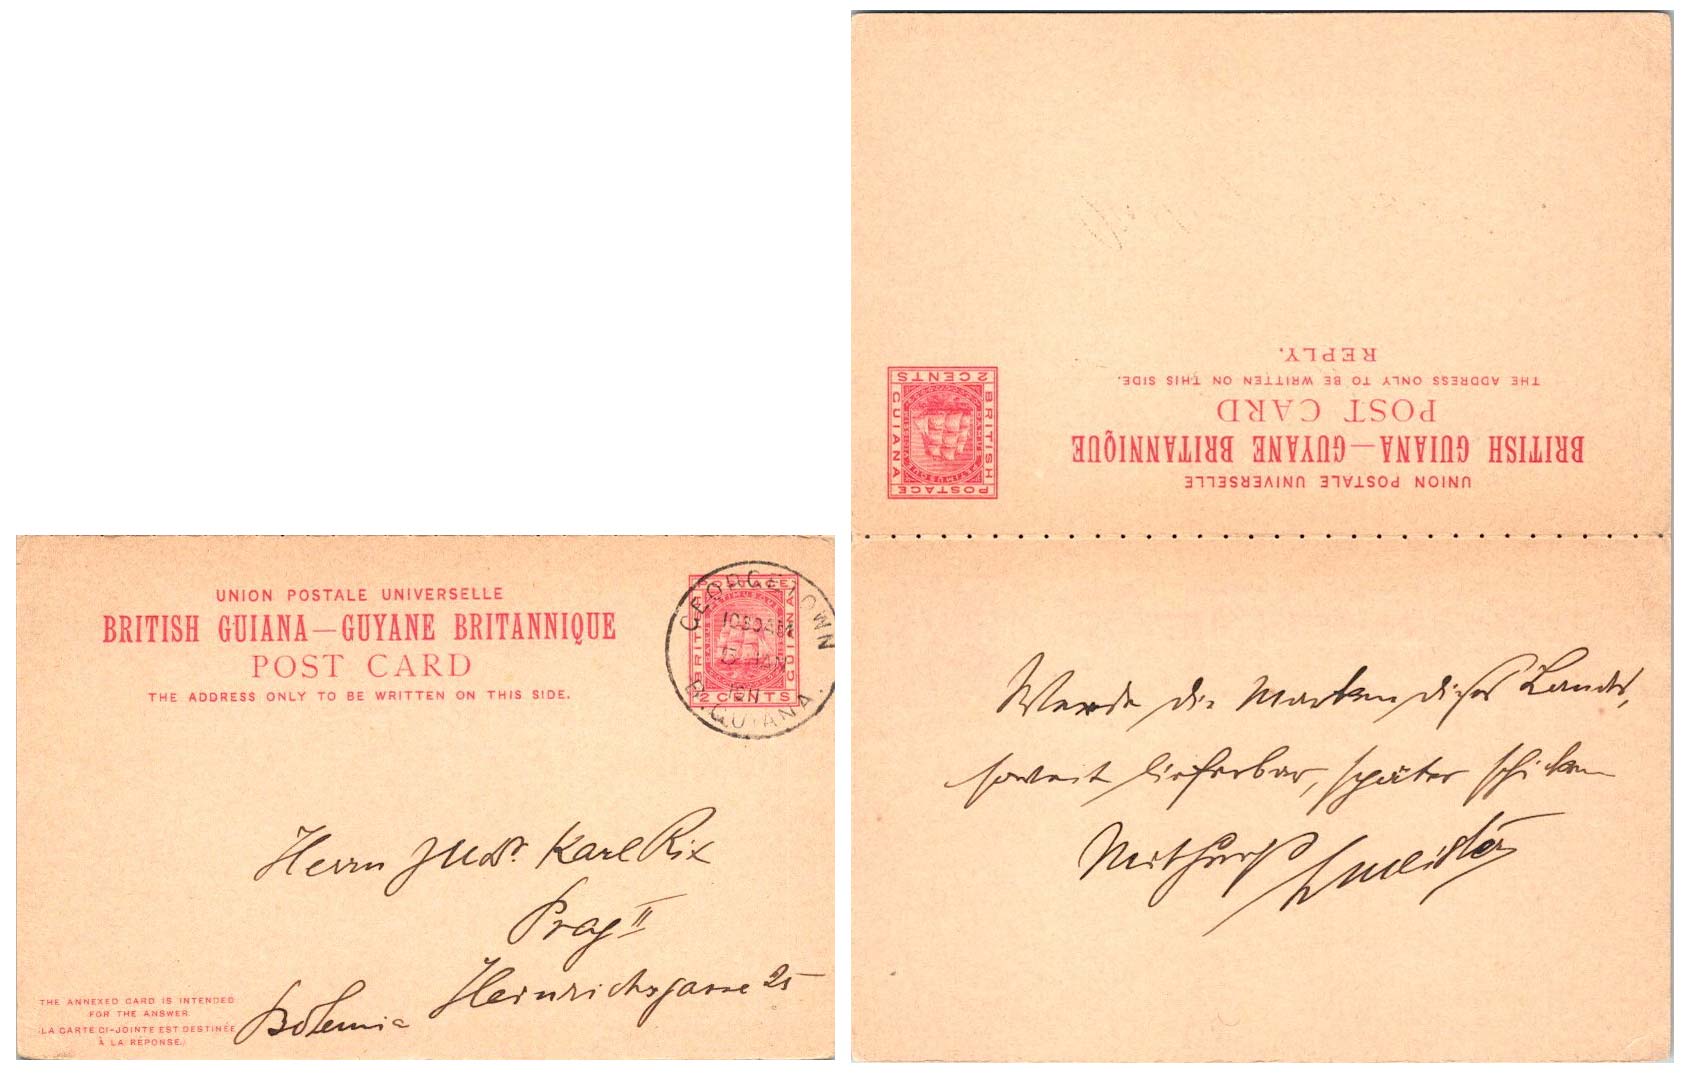 UNION POSTALE UNIVERSELLE
BRITISH GUIANA—GUYANE BRITANNIQUE
POST CARD
THE ADDRESS ONLY TO BE WRITTEN ON THIS SIDE.
POSTAGE
BRITISH
GUIANA
2 CENTS
GEORGETOWN
1030AM
JAN
B. GUIANA.
Herrn JUDr. Karl Rix
Prag II
Heinrichsgasse 25
Bohemia
THE ANNEXED CARD IS INTENDED
FOR THE ANSWER.
(LA CARTE CI-JOINTE EST DESTINÉE
À LA RÉPONSE.)
UNION POSTALE UNIVERSELLE
BRITISH GUIANA—GUYANE BRITANNIQUE
POST CARD
THE ADDRESS ONLY TO BE WRITTEN ON THIS SIDE.
REPLY.
POSTAGE
BRITISH
GUIANA
2 CENTS
DAMUS PETIMUSQUE VICISSIM
Werde die Marken dieses Landes,
soweit lieferbar, später schicken
Mit Gruß